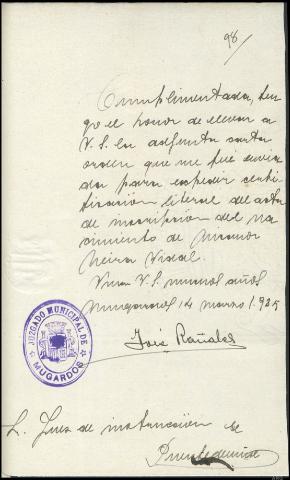 98
Cumplimentada, ten-
go el honor de elevar a
V.S. la adjunta carta
orden que me fué envia
da para expedir certi-
ficación literal del acta
de inscripción del na
cimiento de
Neira Vidal.
Viva V.S. muchos años
Mugardos 14 marzo 1.925
José
JUZGADO MUNICIPAL DE
MUGARDOS
S. Juez de instrucción de
Puentedeume